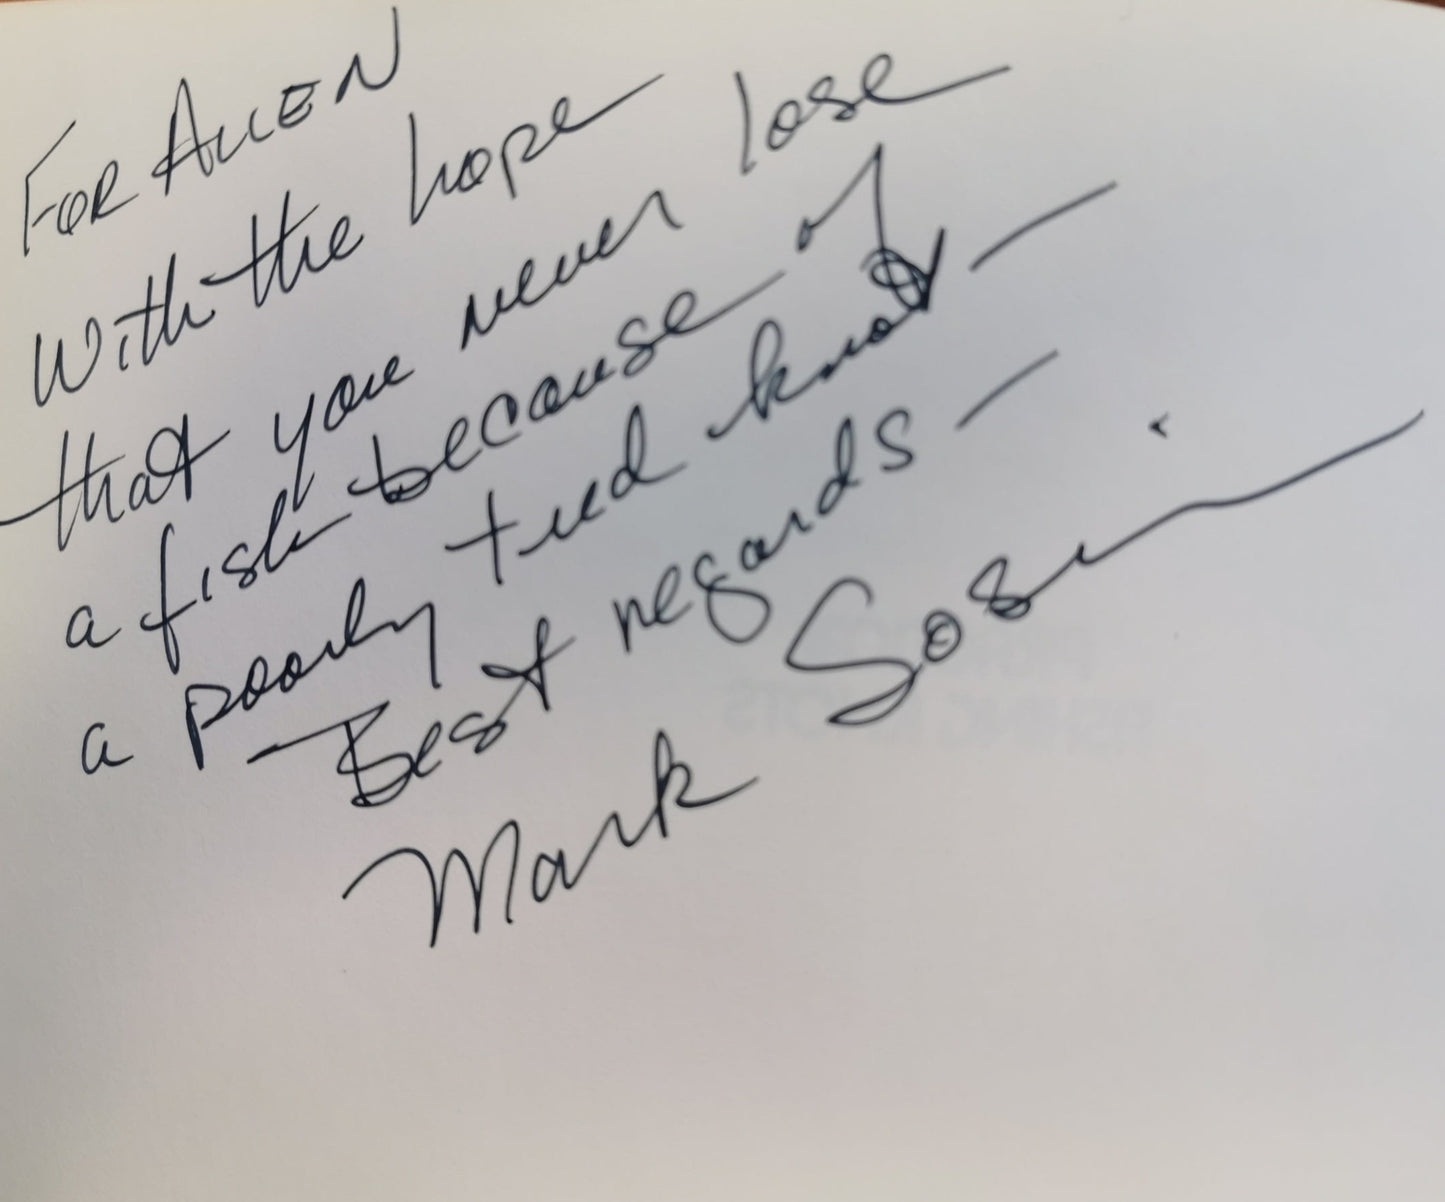 FOR ALLEN
With the hope
that you never lose
a fish because of
a poorly tied knot —
Best regards —
Mark Sosin